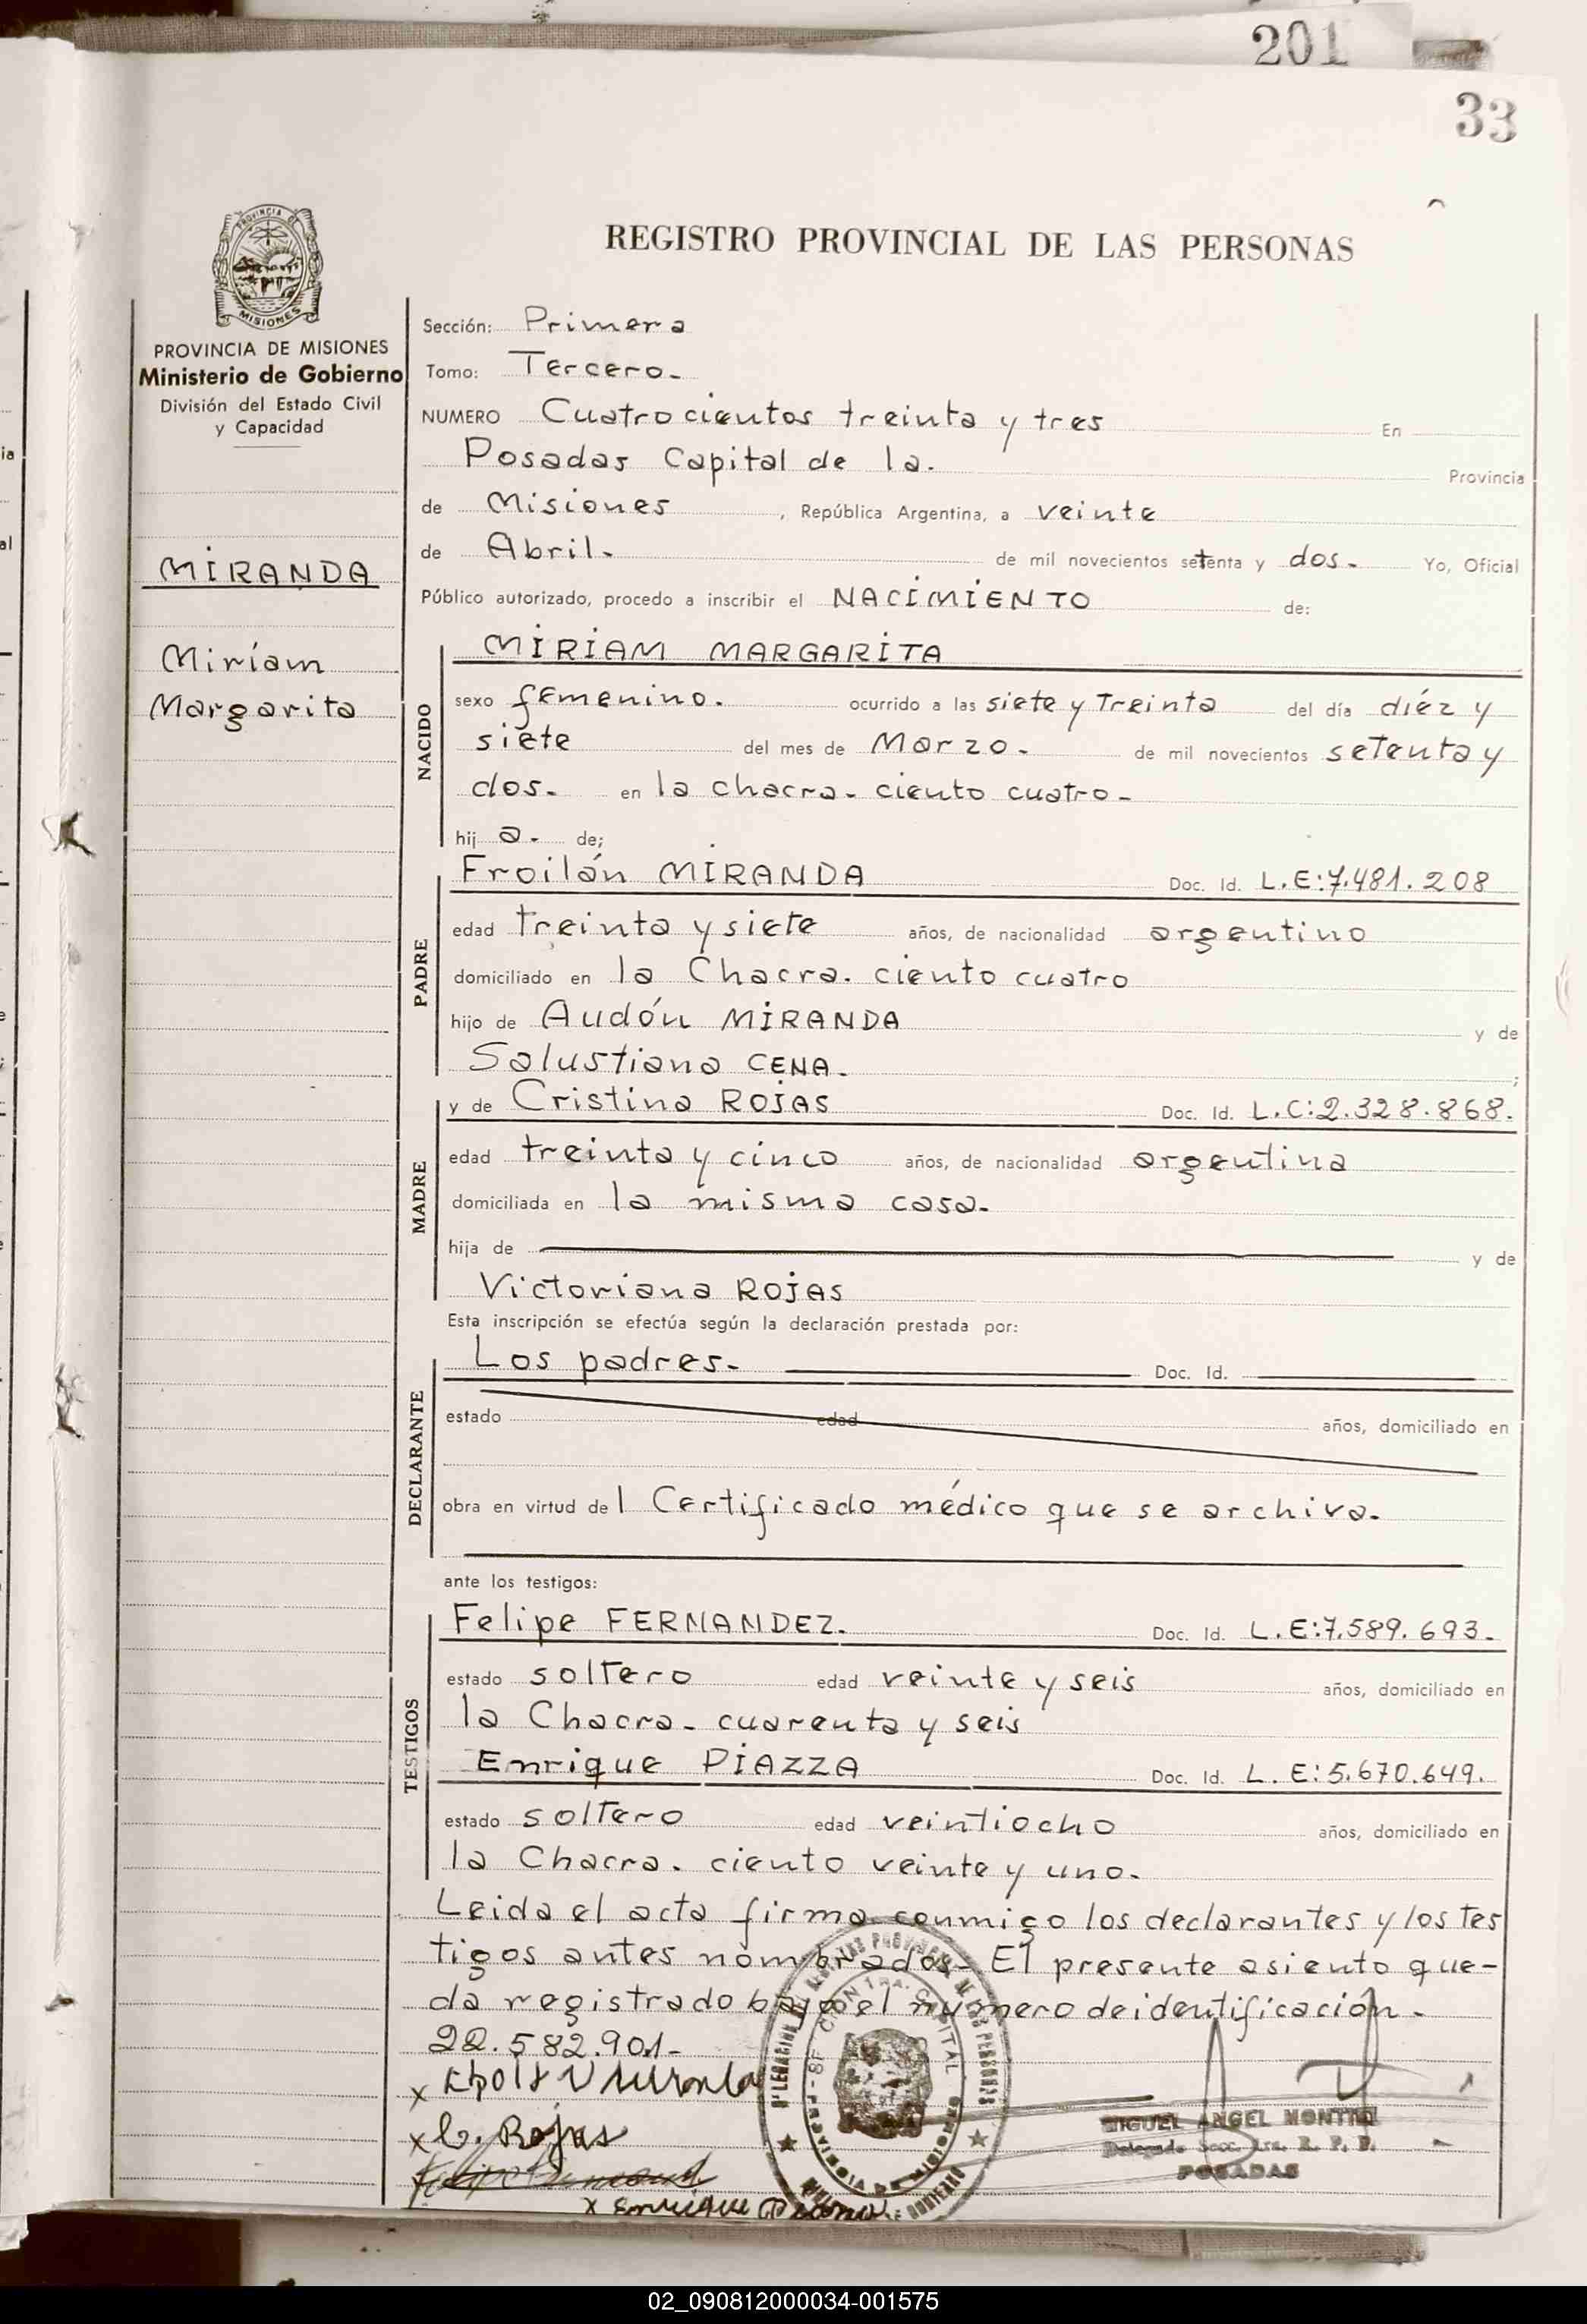 201
33
PROVINCIA DE
MISIONES
REGISTRO PROVINCIAL DE LAS PERSONAS
PROVINCIA DE MISIONES
Ministerio de Gobierno
División del Estado Civil
y Capacidad
MIRANDA
Miriam
Margarita
Sección: Primera
Tomo: Tercero.
NUMERO Cuatrocientos treinta y tres En
Posadas Capital de la. Provincia
de Misiones, República Argentina, a veinte
de Abril. de mil novecientos setenta y dos. Yo, Oficial
Público autorizado, procedo a inscribir el NACIMIENTO de:
NACIDO
MIRIAM MARGARITA
sexo femenino. ocurrido a las siete y treinta del día diéz y
siete del mes de Marzo. de mil novecientos setenta y
dos. en la chacra. ciento cuatro.
hij a. de;
PADRE
Froilán MIRANDA Doc. Id. L.E:7.481.208
edad treinta y siete años, de nacionalidad argentino
domiciliado en la Chacra. ciento cuatro
hijo de Audón MIRANDA y de
Salustiana CENA. ;
MADRE
y de Cristina ROJAS Doc. Id. L.C:2.328.868.
edad treinta y cinco años, de nacionalidad argentina
domiciliada en la misma casa.
hija de y de
Victoriana ROJAS
Esta inscripción se efectúa según la declaración prestada por:
DECLARANTE
Los padres. Doc. Id.
estado edad años, domiciliado en
obra en virtud del Certificado médico que se archiva.
ante los testigos:
TESTIGOS
Felipe FERNANDEZ. Doc. Id. L.E:7.589.693.
estado soltero edad veinte y seis años, domiciliado en
la Chacra. cuarenta y seis
Enrique PIAZZA Doc. Id. L.E:5.670.649.
estado soltero edad veintiocho años, domiciliado en
la Chacra. ciento veinte y uno.
Leida el acta firma conmigo los declarantes y los tes
tigos antes nombrados. El presente asiento que-
da registrado bajo el número de identificación.
22.582.901-
x Miranda
x C. Rojas
x Enrique
MIGUEL ANGEL
Delegado Secc. 1ra. R. P. P.
POSADAS
02_090812000034-001575